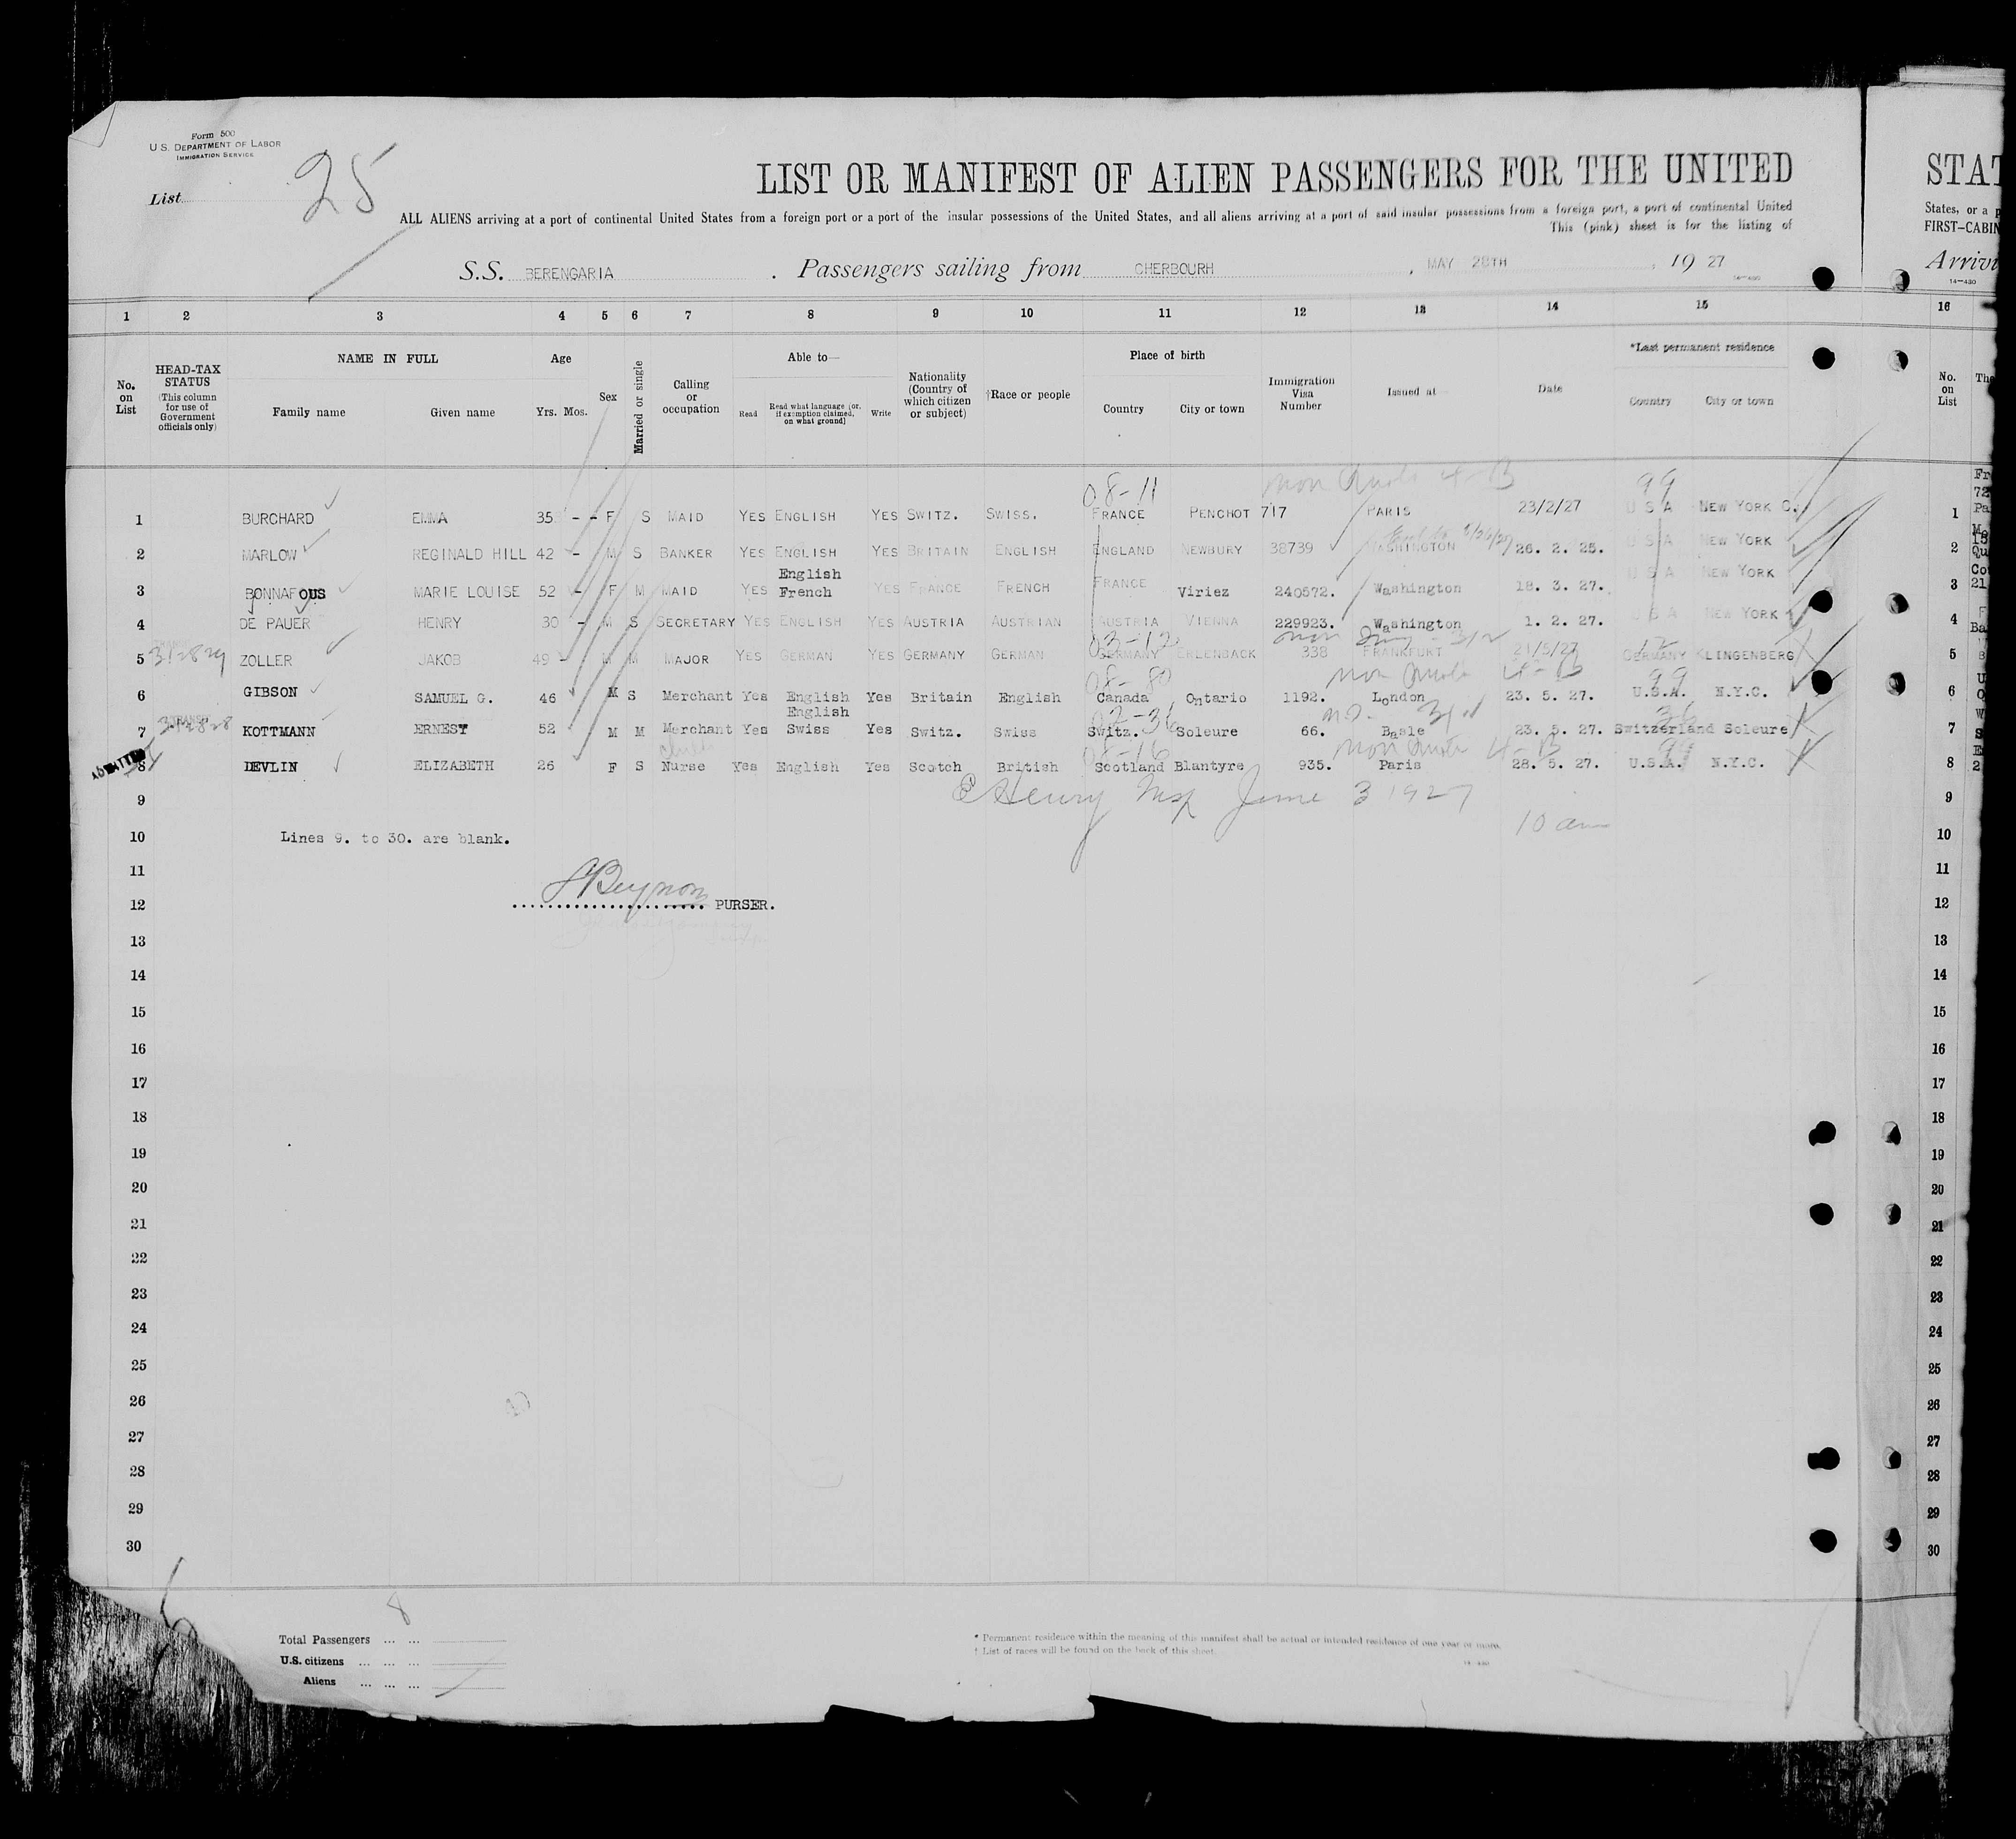 Form 500
U. S. DEPARTMENT OF LABOR
IMMIGRATION SERVICE
List 25
LIST OR MANIFEST OF ALIEN PASSENGERS FOR THE UNITED STAT
ALL ALIENS arriving at a port of continental United States from a foreign port or a port of the insular possessions of the United States, and all aliens arriving at a port of said insular possessions from a foreign port, a port of continental United States, or a p
This (pink) sheet is for the listing of FIRST-CABIN
S.S. BERENGARIA . Passengers sailing from CHERBOURH , MAY 28TH , 19 27 Arrivi
14-430 14-430
1 2 3 4 5 6 7 8 9 10 11 12 13 14 15 16
No. on List HEAD-TAX STATUS (This column for use of Government officials only) NAME IN FULL Family name Given name Age Yrs. Mos. Sex Married or single Calling or occupation Able to— Read Read what language [or, if exemption claimed, on what ground] Write Nationality (Country of which citizen or subject) †Race or people Place of birth Country City or town Immigration Visa Number Issued at— Date *Last permanent residence Country City or town No. on List The
08-11 non Quota 4-B 99
1 BURCHARD EMMA 35 - - F S MAID YES ENGLISH YES SWITZ. SWISS. FRANCE PENCHOT 717 PARIS 23/2/27 U S A NEW YORK C. 1
2 MARLOW REGINALD HILL 42 - M S BANKER YES ENGLISH YES BRITAIN ENGLISH ENGLAND NEWBURY 38739 WASHINGTON 26. 2. 25. U S A NEW YORK 2
3 BONNAFOUS MARIE LOUISE 52 - F M MAID YES English French YES FRANCE FRENCH FRANCE Viriez 240572. Washington 18. 3. 27. U S A NEW YORK 3
4 DE PAUER HENRY 30 - M S SECRETARY YES ENGLISH YES AUSTRIA AUSTRIAN AUSTRIA VIENNA 229923. Washington 1. 2. 27. U S A NEW YORK 4
03-12
5 ZOLLER JAKOB 49 - M M MAJOR YES GERMAN YES GERMANY GERMAN GERMANY ERLENBACK 338 FRANKFURT 21/5/27 GERMANY KLINGENBERG 5
08-80 non Quota 4-B 99
6 GIBSON SAMUEL G. 46 M S Merchant Yes English Yes Britain English Canada Ontario 1192. London 23. 5. 27. U.S.A. N.Y.C. 6
02-36 36
7 KOTTMANN ERNEST 52 M M Merchant Yes English Swiss Yes Switz. Swiss Switz. Soleure 66. Basle 23. 5. 27. Switzerland Soleure 7
08-16 non Quota 4-B 99
ADMITTED
8 DEVLIN ELIZABETH 26 F S Nurse Yes English Yes Scotch British Scotland Blantyre 935. Paris 28. 5. 27. U.S.A. N.Y.C. 8
9 E Henry Insp June 3 1927 9
10 Lines 9. to 30. are blank. 10 am 10
11 11
12 PURSER. 12
13 13
14 14
15 15
16 16
17 17
18 18
19 19
20 20
21 21
22 22
23 23
24 24
25 25
26 26
27 27
28 28
29 29
30 30
8
Total Passengers ... ...
U.S. citizens ... ... ...
Aliens ... ... ...
* Permanent residence within the meaning of this manifest shall be actual or intended residence of one year or more.
† List of races will be found on the back of this sheet.
14-430